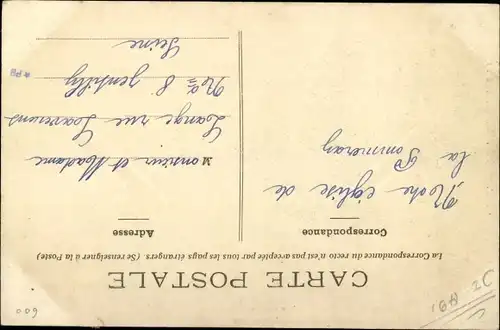 CARTE POSTALE
La Correspondance du recto n'est pas acceptée par tous les pays étrangers. (Se renseigner à la Poste)
Correspondance
Notre église de
la Pommeray
Adresse
Monsieur et Madame
rue
No 8 Gentilly
Seine
600